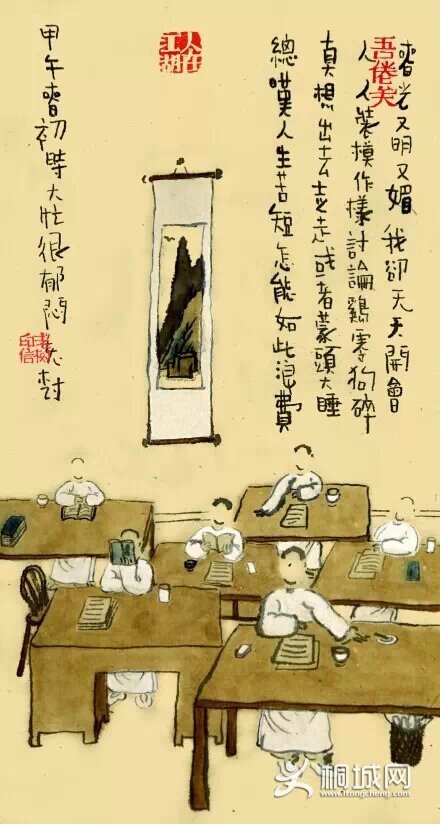 春光又明又媚 我卻天天開會
人人裝模作樣討論雞零狗碎
真想出去走走或者蒙頭大睡
總嘆人生苦短怎能如此浪費
吾倦矣
人在江湖
甲午春初時大壯很郁悶 老树
老樹印信
桐城网
www.itongcheng.com